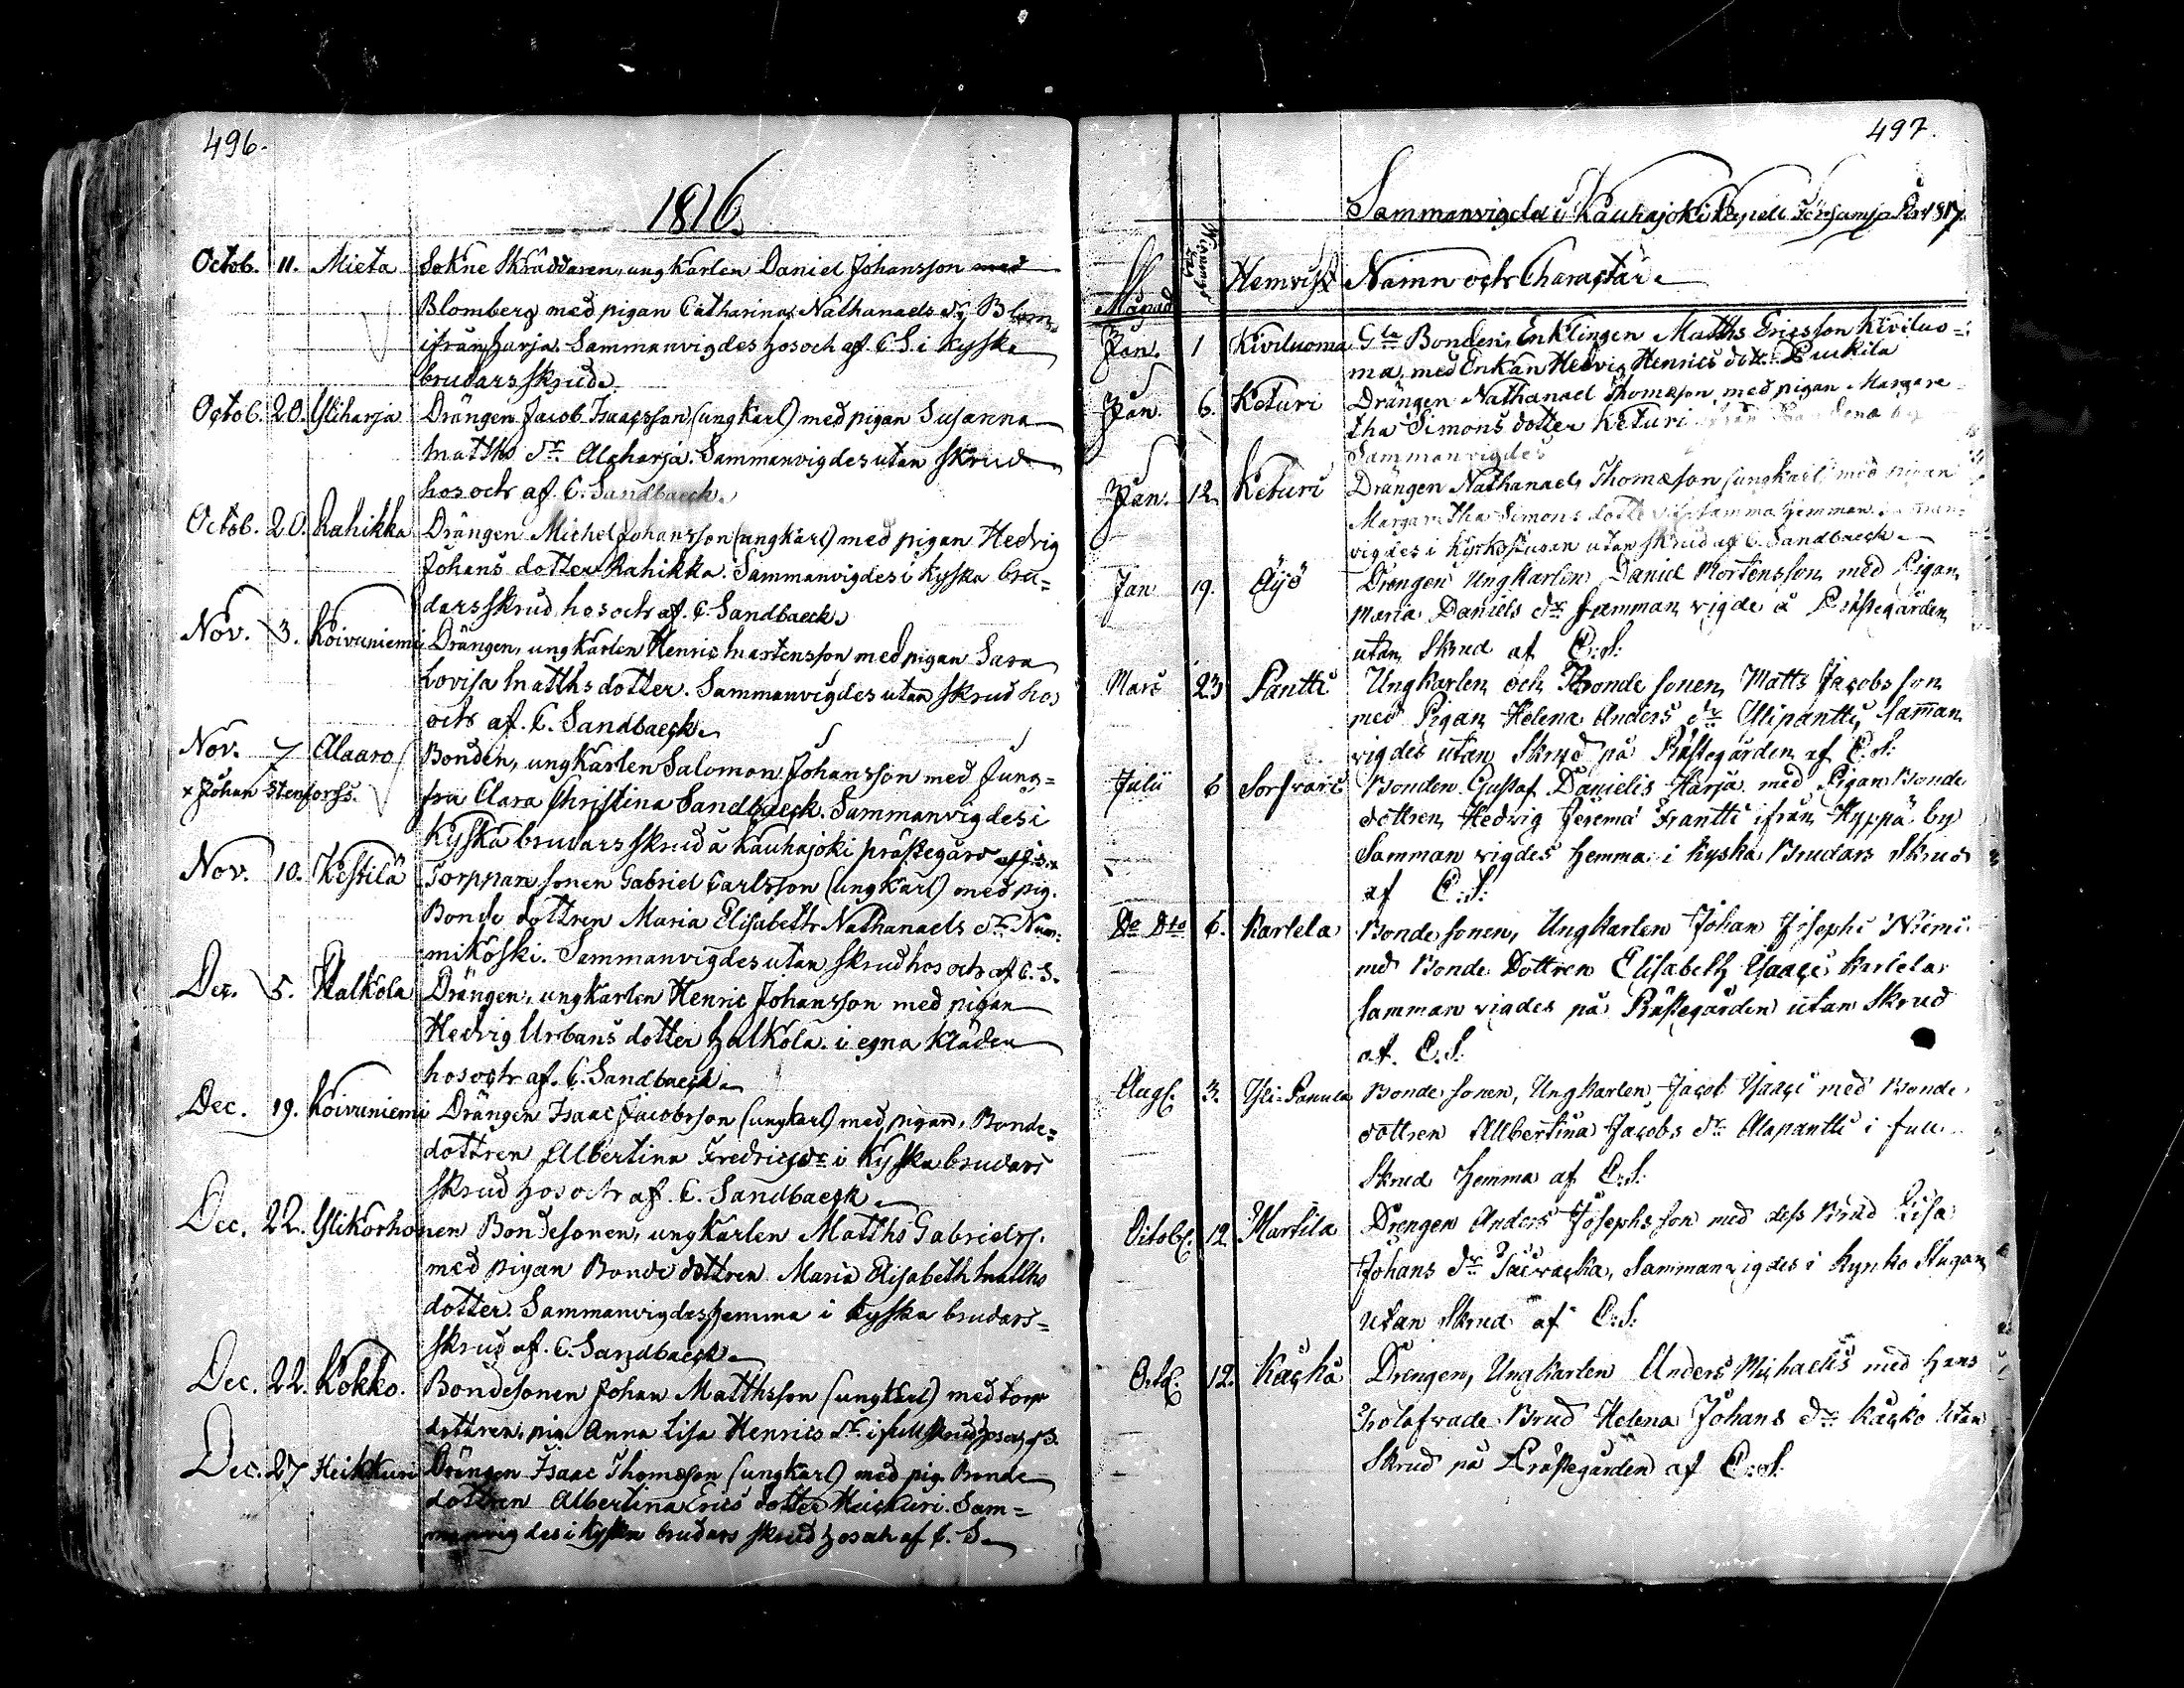 496.
1816
Octob. 11. Mieta Sokne Skräddaren, ungkarlen Daniel Johansson med
Blomberg med pigan Catharina Nathanaels dr Blom-
ifrån Harja. Sammanvigdes hos och af C.S. i kyska
brudarsskrud.
Octob. 20. Yliharja Drängen Jacob Isaacsson (ungkarl) med pigan Susanna
Matths dr. Alaharja. Sammanvigdes utan skrud
hos och af C. Sandbaeck.
Octob. 20. Rahikka Drängen Michel Johansson (ungkarl) med pigan Hedvig
Johans dotter Rahikka. Sammanvigdes i kyska bru=
darsskrud hos och af C. Sandbaeck.
Nov. 3. Koivuniemi Drängen, ungkarlen Henric Martensson med pigan Sara
Lovisa Matths dotter. Sammanvigdes utan skrud hos
och af C. Sandbaeck.
Nov. 7 Alaaro Bonden, ungkarlen Salomon Johansson med Jung=
x Johan Stenfors. fru Clara Christina Sandbaeck. Sammanvigdes i
kyska brudarsskrud å Kauhajoki prästegård af
Nov. 10. Kestilä Torpparsonen Gabriel Carlsson (ungkarl) med pig.
Bonde dottren Maria Elisabeth Nathanaels dr Num-
mikoski. Sammanvigdes utan skrud hos och af C.S.
Dec. 5. Halkola Drängen, ungkarlen Henric Johansson med pigan
Hedvig Urbans dotter Halkola. i egna kläder
hos och af C. Sandbaeck.
Dec. 19. Koivuniemi Drängen Isaac Jacobsson (ungkarl) med pigan, Bonde=
dottren Albertina Fredrics dr i kyska brudars
skrud hos och af C. Sandbaeck.
Dec. 22. Ylikorhonen Bondesonen, ungkarlen Matths Gabrielss.
med pigan Bonde dottren Maria Elisabeth Matths
dotter. Sammanvigdes hemma i kyska brudars=
skrud af C. Sandbaeck.
Dec. 22. Kokko. Bondesonen Johan Matthsson (ungkarl) med torp
dottren, pig. Anna Lisa Henrics dr i full skrud
Dec. 27 Heikkuri Drängen Isaac Thomæson (ungkarl) med pig. Bonde
dottren Albertina Erics dotter Heickuri. Sam=
manvigdes i kyska brudars skrud hos och af C. S.
497.
Sammanvigde i Kauhajoki Capell Församl. År 1817.
Månad Hemvist Namn och Charactär
Jan. 1 Kiviluoma Gla Bonden, Enklingen Matths Ericsson Kiviluo=
ma, med Enkan Hedvig Henrics dott. Puckila
Jan. 6. Keturi Drängen Nathanael Thomæson, med pigan Margare
tha Simons dotter Keturi
Sammanvigdes
Jan. 12. Keturi Drängen Nathanael Thomæson (ungkarl) med pigan
Margaretha Simons dotter samma hemman. Samman-
vigdes i Kyrkostugan utan skrud af C. Sandbaeck.
Jan 19. Äijö Drengen Ungkarlen Daniel Mortensson med Pigan
Maria Daniels dr samman vigde å Prästegården
utan Skrud af C:S:
Mars 23 Pantti Ungkarlen och Bonde sonen Matts Jacobsson
med Pigan Helena Anders dr Ylipantti, samman
vigdes utan Skrud på Prästegården af C:S:
Julii 6 Sorfvari Bonden Gustaf Danielis Harja med Pigan Bonde
dottren Hedvig Jeremiæ Frantti ifrån Hyppä by
Samman vigdes hemma i kyska Brudars Skrud
af C:S:
Do Dto 6. Karlela Bonde sonen, Ungkarlen Johan Josephi Niemi
med Bonde Dottren Elisabeth Isaaci Karlela
samman vigdes på Prästegården utan Skrud
af C.S.
Augs. 3. Yli-Panula Bonde sonen, Ungkarlen Jacob Isaaci med Bonde
dottren Albertina Jacobs dr Alapantti i full
Skrud hemma af C.S.
Octobr. 12 Martila Drengen Anders Josephsson med dess Brud Lisa
Johans dr, Sammanvigdes i Kyrko Stugan
utan Skrud af C:S:
Octr. 12. Kacko Drengen, Ungkarlen Anders Michaelis med hans
Trolofvade Brud Helena Johans dr Kacko utan
Skrud på Prästegården af C:S: